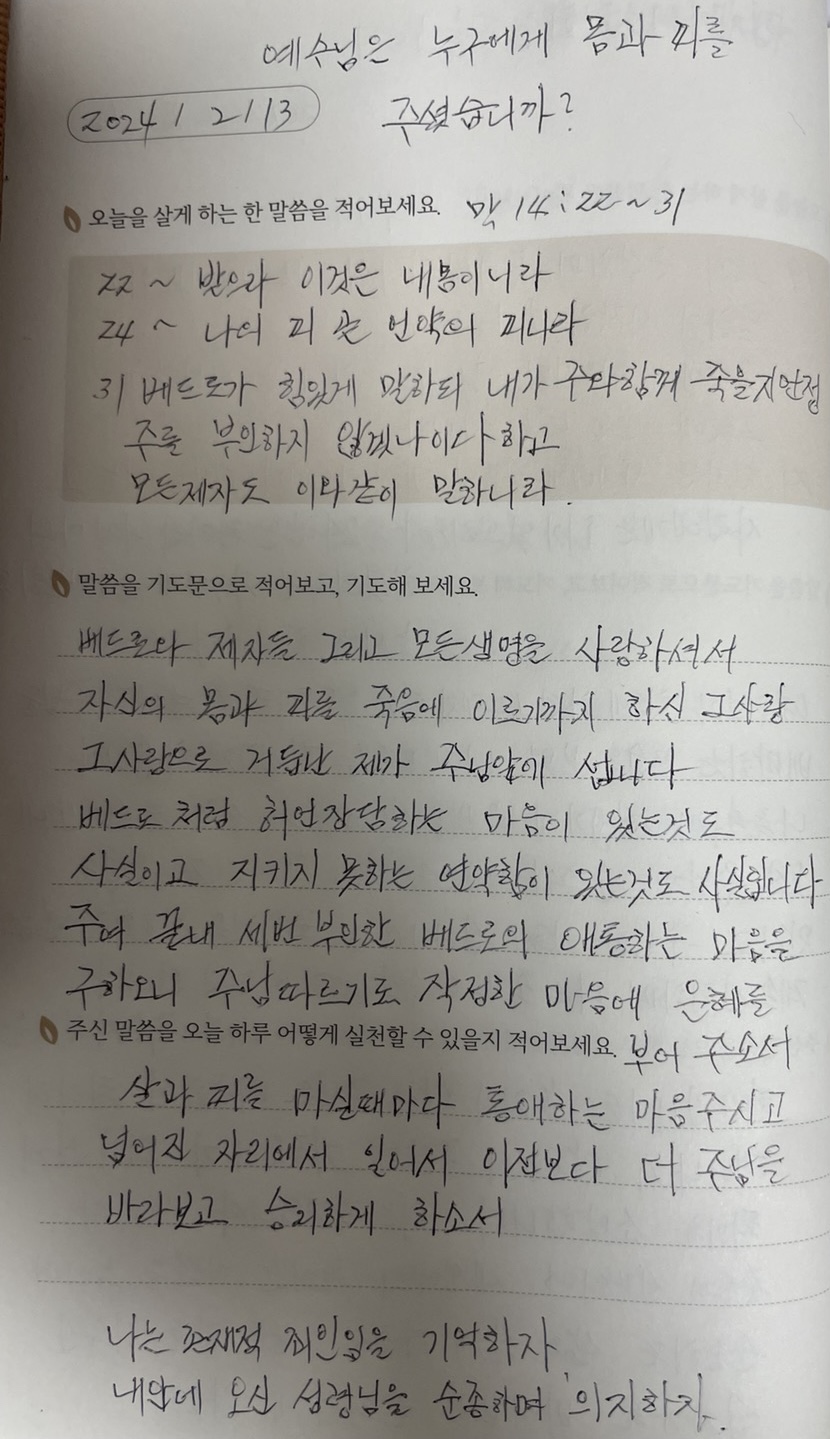 예수님은 누구에게 몸과 피를
2024 / 2 / 13 주셨습니까?
오늘을 살게 하는 한 말씀을 적어보세요. 막 14 : 22 ~ 31
22 ~ 받으라 이것은 내몸이니라
24 ~ 나의 피 곧 언약의 피니라
31 베드로가 힘있게 말하되 내가 주와함께 죽을지언정
주를 부인하지 않겠나이다 하고
모든제자도 이와같이 말하니라.
말씀을 기도문으로 적어보고, 기도해 보세요.
베드로와 제자들 그리고 모든생명을 사랑하셔서
자신의 몸과 피를 죽음에 이르기까지 하신 그사랑
그사랑으로 거듭난 제가 주님앞에 섭니다
베드로 처럼 허언장담하는 마음이 있는것도
사실이고 지키지 못하는 연약함이 있는것도 사실입니다
주여 끝내 세번 부인한 베드로의 애통하는 마음을
구하오니 주님따르기로 작정한 마음에 은혜를
주신 말씀을 오늘 하루 어떻게 실천할 수 있을지 적어보세요. 부어 주소서
살과 피를 마실때마다 통애하는 마음주시고
넘어진 자리에서 일어서 이전보다 더 주님을
바라보고 승리하게 하소서
나는 존재적 죄인임을 기억하자
내안에 오신 성령님을 순종하며 의지하자.